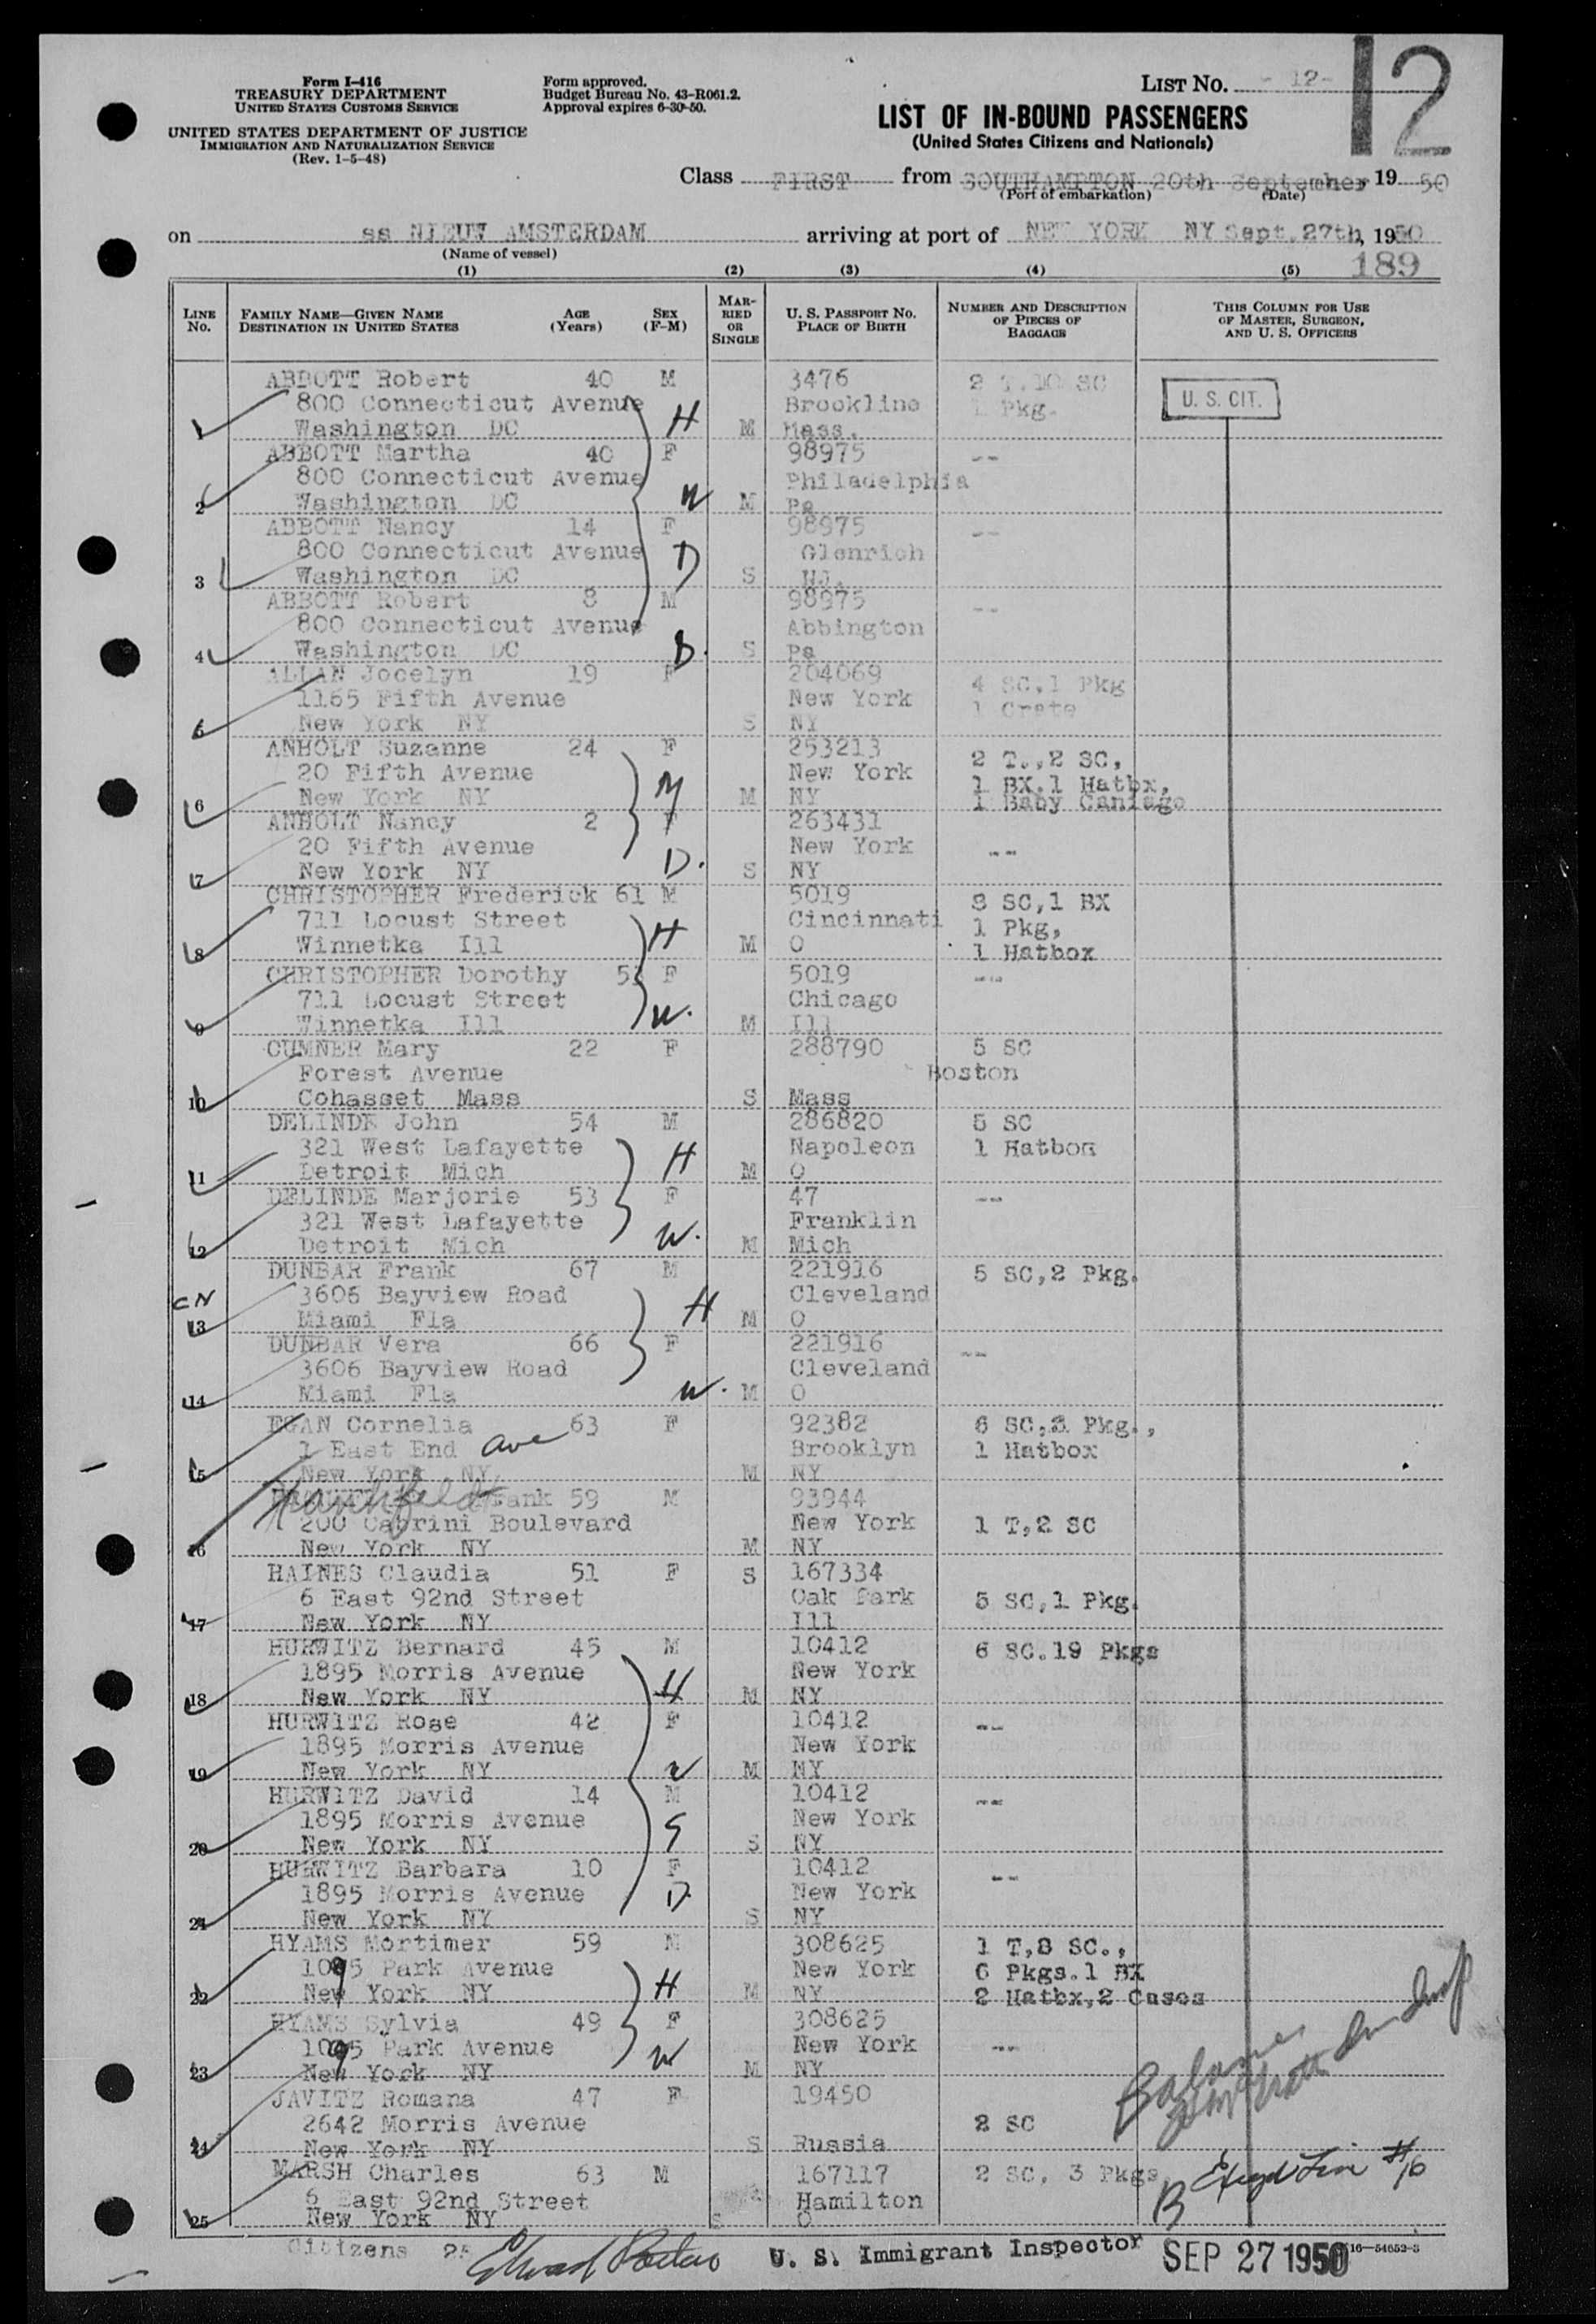 Form I-416
TREASURY DEPARTMENT
UNITED STATES CUSTOMS SERVICE
UNITED STATES DEPARTMENT OF JUSTICE
IMMIGRATION AND NATURALIZATION SERVICE
(Rev. 1-5-48)
Form approved.
Budget Bureau No. 43-R061.2.
Approval expires 6-30-50.
LIST NO. -12-
12
LIST OF IN-BOUND PASSENGERS
(United States Citizens and Nationals)
Class FIRST from SOUTHAMPTON 20th September, 1950
(Port of embarkation) (Date)
on ss NIEUW AMSTERDAM arriving at port of NEW YORK NY Sept.27th, 1950
(Name of vessel)
189
(1) (2) (3) (4) (5)
LINE NO. FAMILY NAME—GIVEN NAME DESTINATION IN UNITED STATES AGE (Years) SEX (F-M) MARRIED OR SINGLE U. S. PASSPORT NO. PLACE OF BIRTH NUMBER AND DESCRIPTION OF PIECES OF BAGGAGE THIS COLUMN FOR USE OF MASTER, SURGEON, AND U. S. OFFICERS
ABBOTT Robert 40 M 3476 2 T.10 SC
800 Connecticut Avenue H Brookline 1 Pkg. U. S. CIT.
1 Washington DC M Mass.
ABBOTT Martha 40 F 98975 --
800 Connecticut Avenue Philadelphia
2 Washington DC W M Pa
ABBOTT Nancy 14 F 98975 --
800 Connecticut Avenue D Glenrich
3 Washington DC S NJ.
ABBOTT Robert 8 M 98975 --
800 Connecticut Avenue Abbington
4 Washington DC S Pa
ALLAN Jocelyn 19 F 204069 4 SC.1 Pkg
1165 Fifth Avenue New York 1 Crate
5 New York NY S NY
ANHOLT Suzanne 24 F 253213 2 T.,2 SC,
20 Fifth Avenue M New York 1 BX.1 Hatbx,
6 New York NY M NY 1 Baby Caniage
ANHOLT Nancy 2 F 263431
20 Fifth Avenue New York --
7 New York NY D. S NY
CHRISTOPHER Frederick 61 M 5019 8 SC,1 BX
711 Locust Street H Cincinnati 1 Pkg,
8 Winnetka Ill M O 1 Hatbox
CHRISTOPHER Dorothy F 5019 --
711 Locust Street Chicago
9 Winnetka Ill W. M Ill
CUMNER Mary 22 F 288790 5 SC
Forest Avenue Boston
10 Cohasset Mass S Mass
DELINDE John 54 M 286820 5 SC
321 West Lafayette H Napoleon 1 Hatbox
11 Detroit Mich M O
DELINDE Marjorie 53 F 47 --
321 West Lafayette Franklin
12 Detroit Mich W. M Mich
DUNBAR Frank 67 M 221916 5 SC,2 Pkg.
CN 3606 Bayview Road H Cleveland
13 Miami Fla M O
DUNBAR Vera 66 F 221916 --
3606 Bayview Road Cleveland
14 Miami Fla W. M O
EGAN Cornelia 63 F 92382 6 SC,3 Pkg.,
1 East End Ave Brooklyn 1 Hatbox
15 New York NY M NY
Frank 59 M 93944
200 Cabrini Boulevard New York 1 T,2 SC
16 New York NY M NY
HAINES Claudia 51 F S 167334
6 East 92nd Street Oak Park 5 SC,1 Pkg.
17 New York NY Ill
HURWITZ Bernard 45 M 10412 6 SC.19 Pkgs
1895 Morris Avenue H New York
18 New York NY M NY
HURWITZ Rose 42 F 10412 --
1895 Morris Avenue New York
19 New York NY W M NY
HURWITZ David 14 M 10412 --
1895 Morris Avenue S New York
20 New York NY S NY
HURWITZ Barbara 10 F 10412 --
1895 Morris Avenue D. New York
21 New York NY S NY
HYAMS Mortimer 59 M 308625 1 T,8 SC.,
1095 Park Avenue H New York 6 Pkgs.1 BX
22 New York NY M NY 2 Hatbx,2 Cases
HYAMS Sylvia 49 F 308625
1095 Park Avenue W New York --
23 New York NY M NY
JAVITZ Romana 47 F 19450
2642 Morris Avenue 2 SC
24 New York NY S Russia
MARSH Charles 63 M 167117 2 SC, 3 Pkgs
6 East 92nd Street Hamilton B Line #16
25 New York NY S O
Citizens 25 U. S. Immigrant Inspector SEP 27 1950 16—54652-3